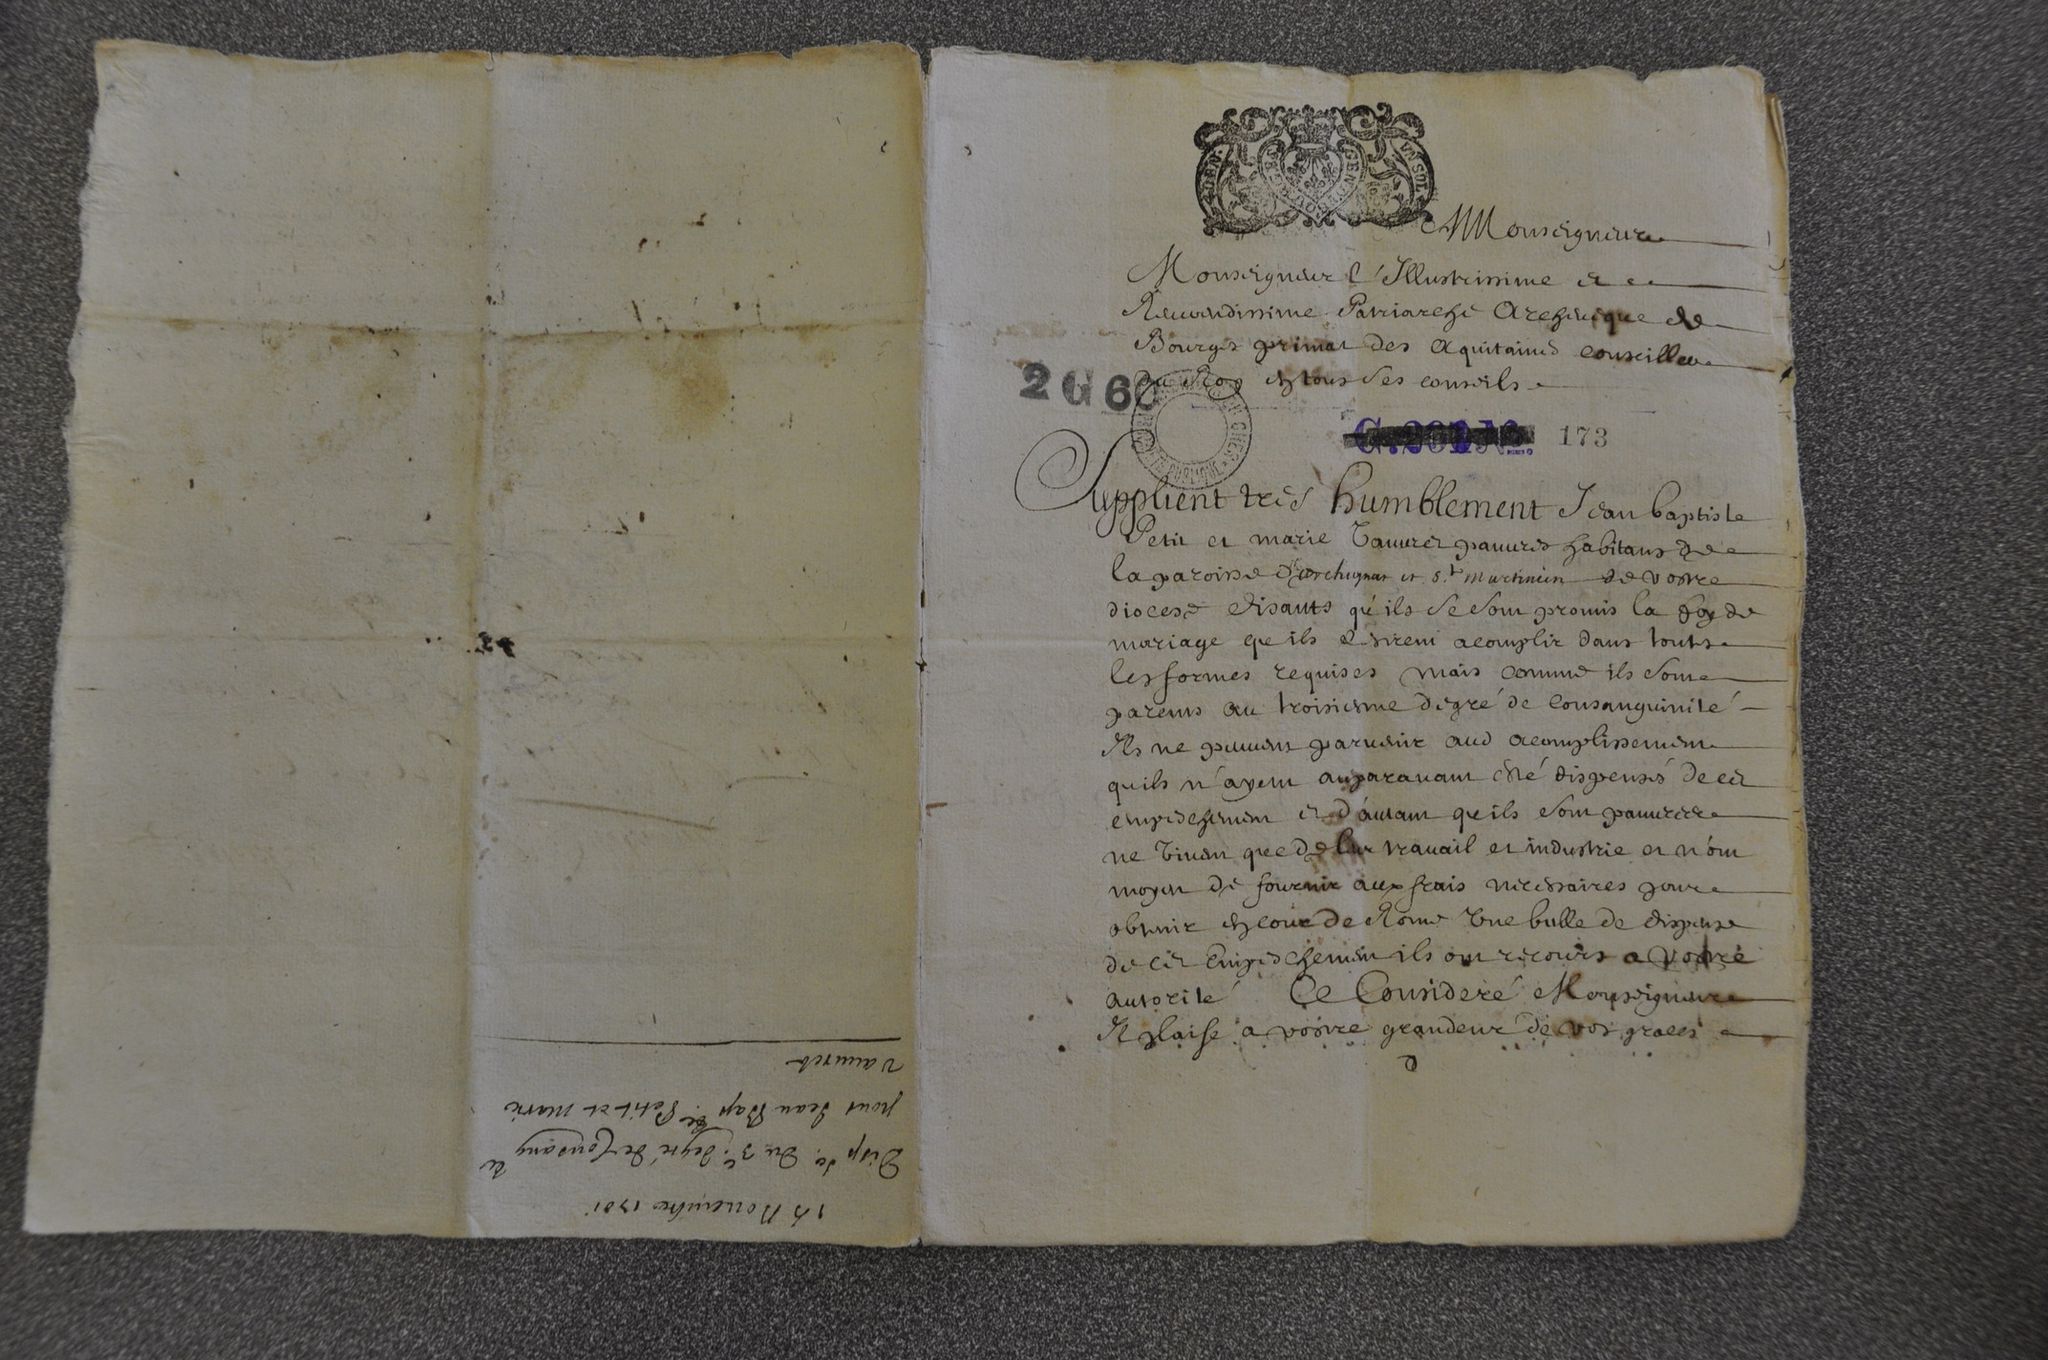 A Monseigneur
Monseigneur l'Illustrissime et
Reuerendissime Patriarche Archeueque de
Bourges primat des Aquitaines Conseiller
du Roy en tous ses conseils
2 G 60
173
Supplient tres humblement Jean baptiste
Petit et marie Vauuret pauures habitans de
la paroisse d'archignat et St martinien de vostre
diocese disants qu'ils se sont promis la foy de
mariage qu'ils desirent acomplir dans toutes
les formes requises mais comme ils sont
parents au troisieme degré de consanguinité
Ils ne peuuent paruenir aud acomplissement
qu'ils n'ayent auparauant esté dispensés de cet
empeschement et d'autant qu'ils sont pauures
ne viuent que de leur trauail et industrie et n'ont
moyen de fournir aux frais necessaires pour
obtenir en cour de Rome vne bulle de dispense
de cet Empeschement ils ont recours a vostre
autorité Ce Consideré Monseigneur
Il plaise a vostre grandeur de vos graces
Nouembre 1701
Disp.se du 3.e degré de Consang.té
pour Jean Bap.te Petit et Marie
Vauuret